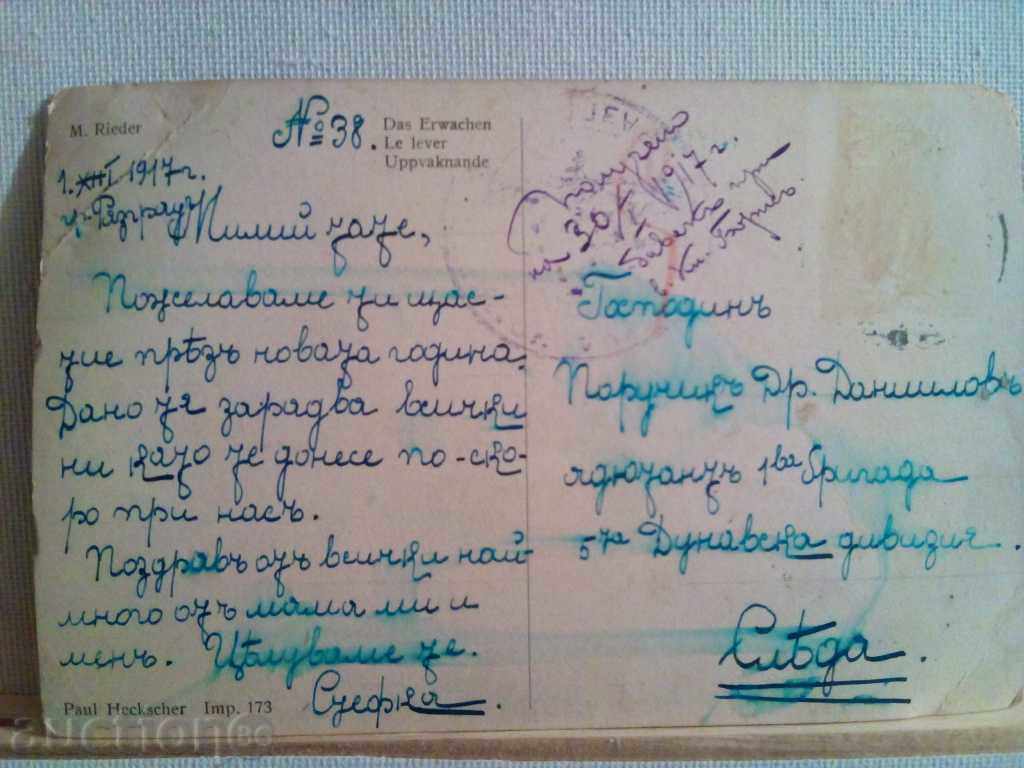 M. Rieder
№ 38.
Das Erwachen
Le lever
Uppvaknande
1. XII 1917 г.
гр. Разградъ
Милий тате,
Пожелаваме ти щас-
тие прѣзъ новата година.
Дано тя зарадва всички
ни като те донесе по-ско-
ро при насъ.
Поздравъ отъ всички най-
много отъ мама ми и
менъ. Цѣлуваме те.
Стефка.
Paul Heckscher Imp. 173
получено
на 30/XII 1917 г.
при
Господинъ
Поручикъ Др. Даниловъ
адютантъ 1ва бригада
5та Дунавска дивизия.
Слѣда.